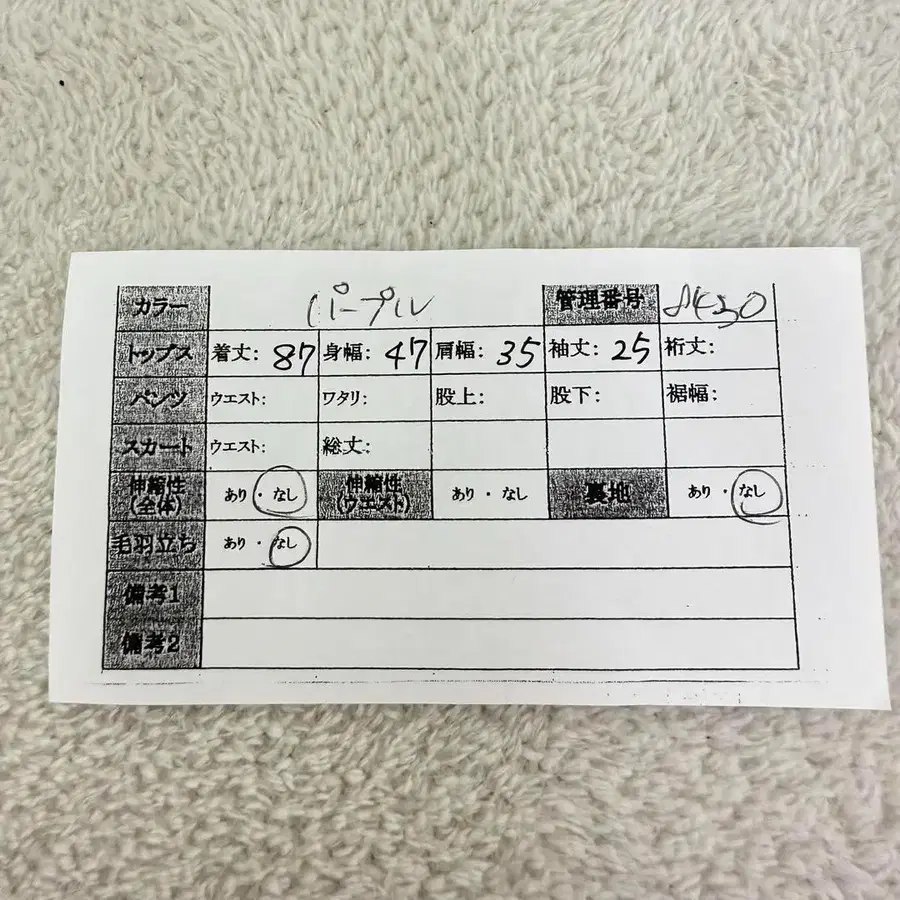 カラー パープル 管理番号
トップス 着丈: 87 身幅: 47 肩幅: 35 袖丈: 25 裄丈:
パンツ ウエスト: ワタリ: 股上: 股下: 裾幅:
スカート ウエスト: 総丈:
伸縮性(全体) あり・なし 伸縮性(ウエスト) あり・なし 裏地 あり・なし
毛羽立ち あり・なし
備考1
備考2